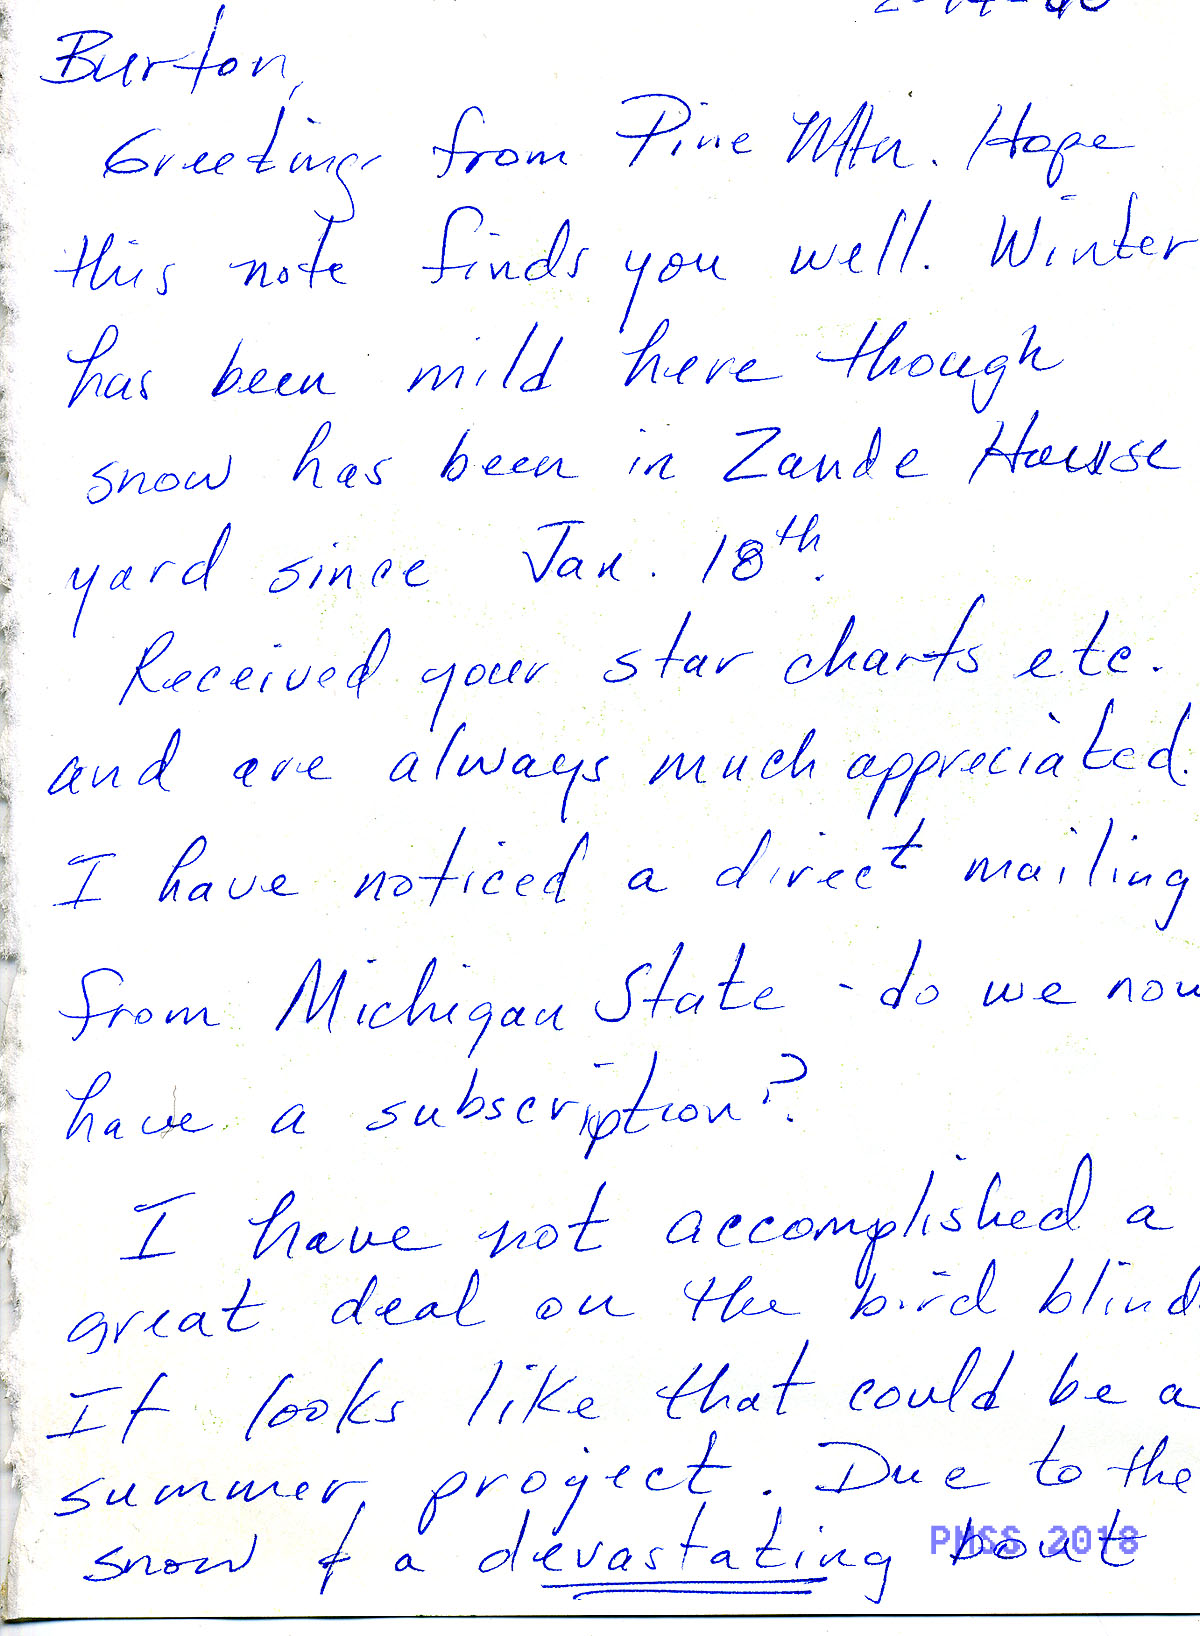 Burton,
Greetings from Pine Mtn. Hope
this note finds you well. Winter
has been mild here though
snow has been in Zande House
yard since Jan. 18th.
Received your star charts etc.
and are always much appreciated.
I have noticed a direct mailing
from Michigan State - do we now
have a subscription?
I have not accomplished a
great deal on the bird blind.
It looks like that could be a
summer project. Due to the
snow & a devastating bout
PMSS 2018